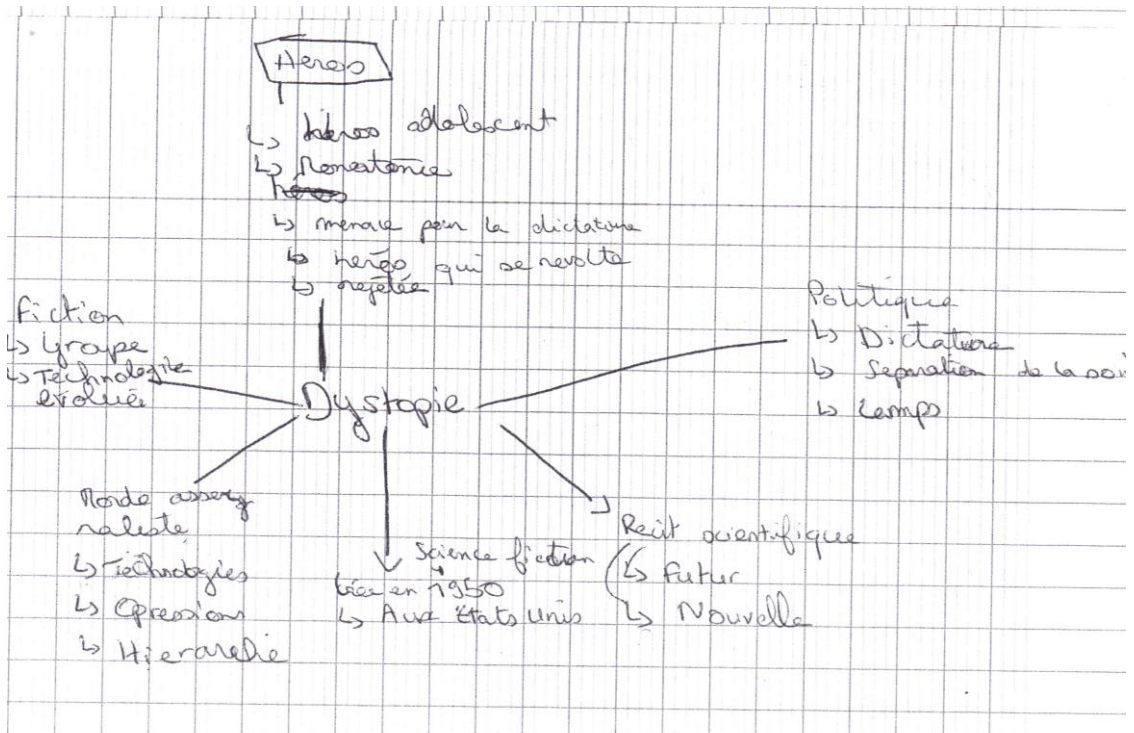 Heros
↳ héros adolescent
↳
héros
↳ menace pour la dictature
↳ heros qui se revolte
↳ rejetée
Fiction
↳ Groupe
↳ Technologie
évoluée
Dystopie
Politique
↳ Dictature
↳ Separation de la
↳ Camps
Monde assez
realiste
↳ Technologies
↳ Opressions
↳ Hierarchie
Science fiction
en 1950
↳ Aux Etats Unis
Recit scientifique
↳ Futur
↳ Nouvelle